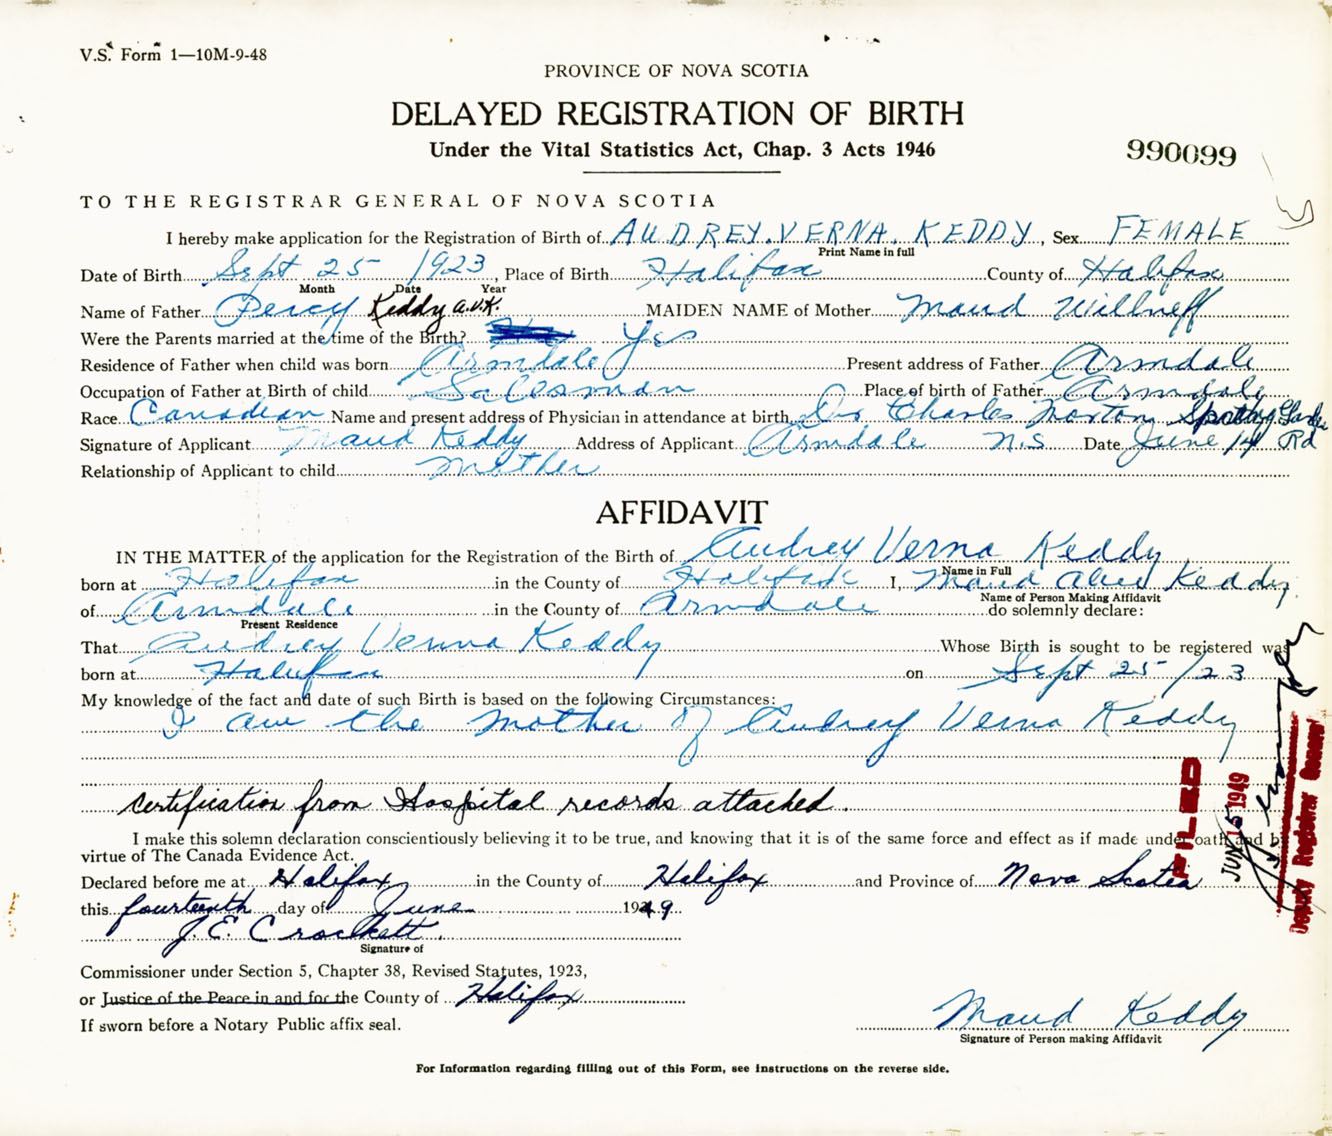 V.S. Form 1—10M-9-48
PROVINCE OF NOVA SCOTIA
DELAYED REGISTRATION OF BIRTH
Under the Vital Statistics Act, Chap. 3 Acts 1946
990099
TO THE REGISTRAR GENERAL OF NOVA SCOTIA
I hereby make application for the Registration of Birth of AUDREY VERNA KEDDY, Sex FEMALE
Print Name in full
Date of Birth Sept 25 1923, Place of Birth Halifax County of Halifax
Month Date Year
Name of Father Percy Keddy a.v.K. MAIDEN NAME of Mother Maud Willneff
Were the Parents married at the time of the Birth? Yes
Residence of Father when child was born Armdale Present address of Father Armdale
Occupation of Father at Birth of child Salesman Place of birth of Father Armdale
Race Canadian Name and present address of Physician in attendance at birth Dr Charles Morton Spring Garden Rd
Signature of Applicant Maud Keddy Address of Applicant Armdale N.S Date June 14
Relationship of Applicant to child Mother
AFFIDAVIT
IN THE MATTER of the application for the Registration of the Birth of Audrey Verna Keddy
Name in Full
born at Halifax in the County of Halifax I, Maud Keddy
Name of Person Making Affidavit
of Armdale in the County of Armdale do solemnly declare:
Present Residence
That Audrey Verna Keddy Whose Birth is sought to be registered was
born at Halifax on Sept 25/23
My knowledge of the fact and date of such Birth is based on the following Circumstances:
I am the mother of Audrey Verna Keddy
Certification from Hospital records attached.
I make this solemn declaration conscientiously believing it to be true, and knowing that it is of the same force and effect as if made under oath and by
virtue of The Canada Evidence Act.
Declared before me at Halifax in the County of Halifax and Province of Nova Scotia
this fourteenth day of June 1949.
J. E. Crockett.
Signature of
Commissioner under Section 5, Chapter 38, Revised Statutes, 1923,
or Justice of the Peace in and for the County of Halifax
If sworn before a Notary Public affix seal.
Maud Keddy
Signature of Person making Affidavit
For Information regarding filling out of this Form, see Instructions on the reverse side.
FILED
JUN 15 1949
Deputy Registrar General